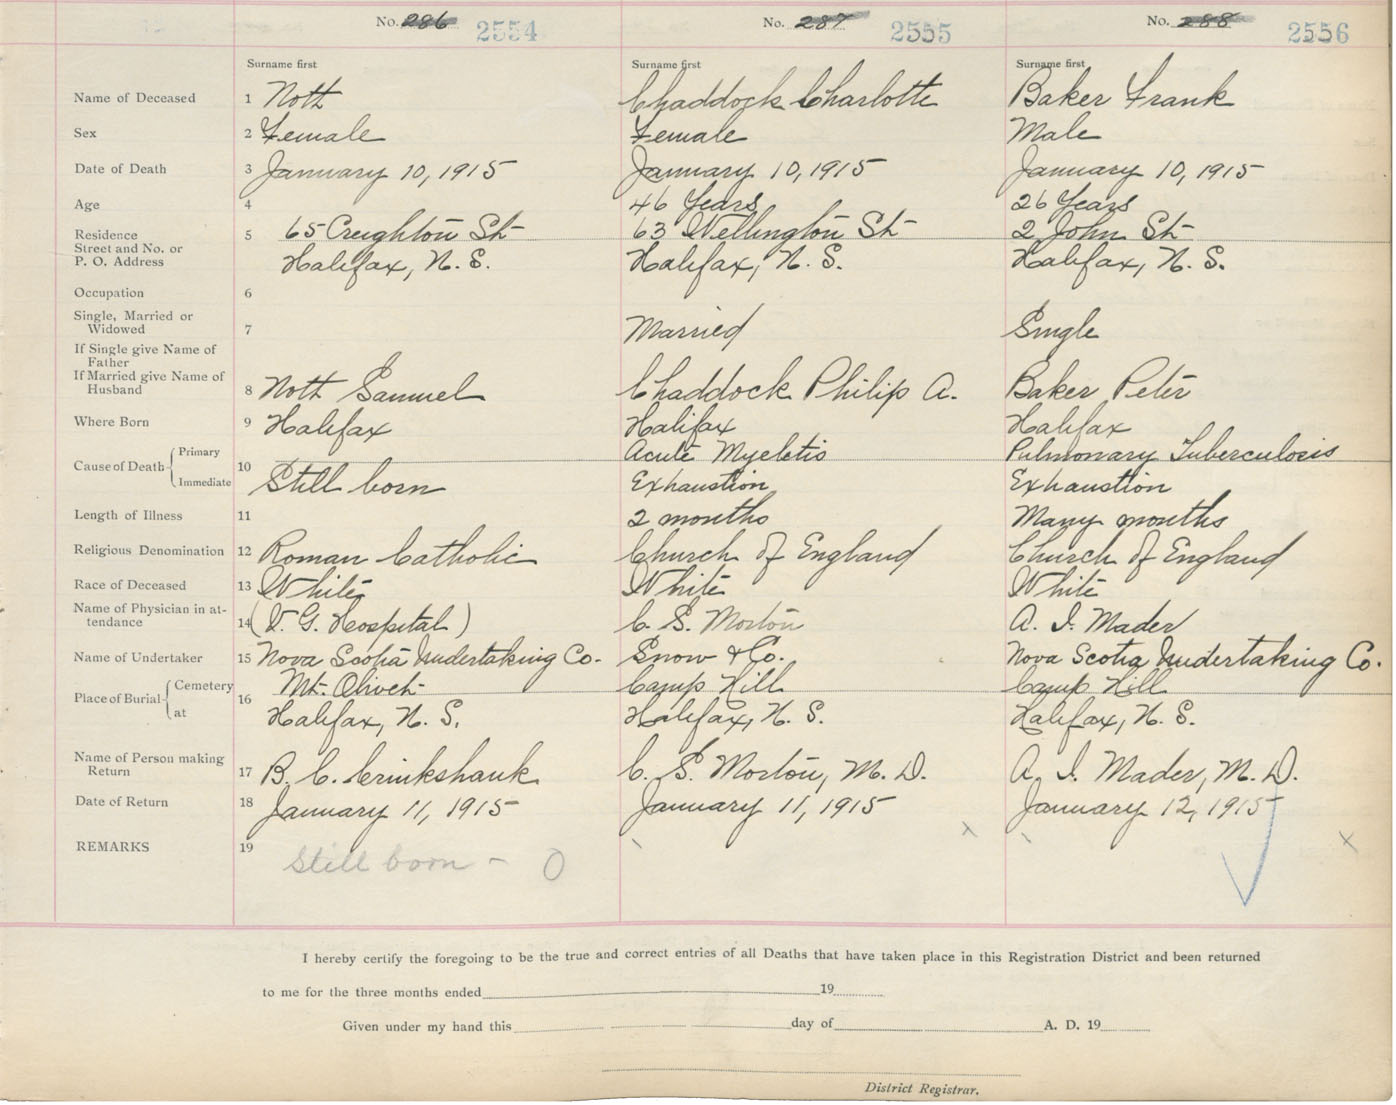 No. 286 2554 No. 287 2555 No. 288 2556
Surname first Surname first Surname first
Name of Deceased 1 Noth Chaddock Charlotte Baker Frank
Sex 2 Female Female Male
Date of Death 3 January 10, 1915 January 10, 1915 January 10, 1915
Age 4 46 Years 26 Years
Residence
Street and No. or
P. O. Address
5 65 Creighton St 63 Wellington St 2 John St
Halifax, N. S. Halifax, N. S. Halifax, N. S.
Occupation 6
Single, Married or
Widowed 7 Married Single
If Single give Name of
Father
If Married give Name of
Husband 8 Noth Samuel Chaddock Philip A. Baker Peter
Where Born 9 Halifax Halifax Halifax
Cause of Death Primary 10 Acute Myeletis Pulmonary Tuberculosis
Immediate Still born Exhaustion Exhaustion
Length of Illness 11 2 months Many months
Religious Denomination 12 Roman Catholic Church of England Church of England
Race of Deceased 13 White White White
Name of Physician in at-
tendance 14 (V. G. Hospital) C. S. Morton A. I. Mader
Name of Undertaker 15 Nova Scotia Undertaking Co. Snow & Co. Nova Scotia Undertaking Co.
Place of Burial Cemetery 16 Mt. Olivet Camp Hill Camp Hill
at Halifax, N. S. Halifax, N. S. Halifax, N. S.
Name of Person making
Return 17 B. C. Crinkshank C. S. Morton, M. D. A. I. Mader, M. D.
Date of Return 18 January 11, 1915 January 11, 1915 January 12, 1915
REMARKS 19 Still born - 0 x x
I hereby certify the foregoing to be the true and correct entries of all Deaths that have taken place in this Registration District and been returned
to me for the three months ended 19
Given under my hand this day of A. D. 19
District Registrar.